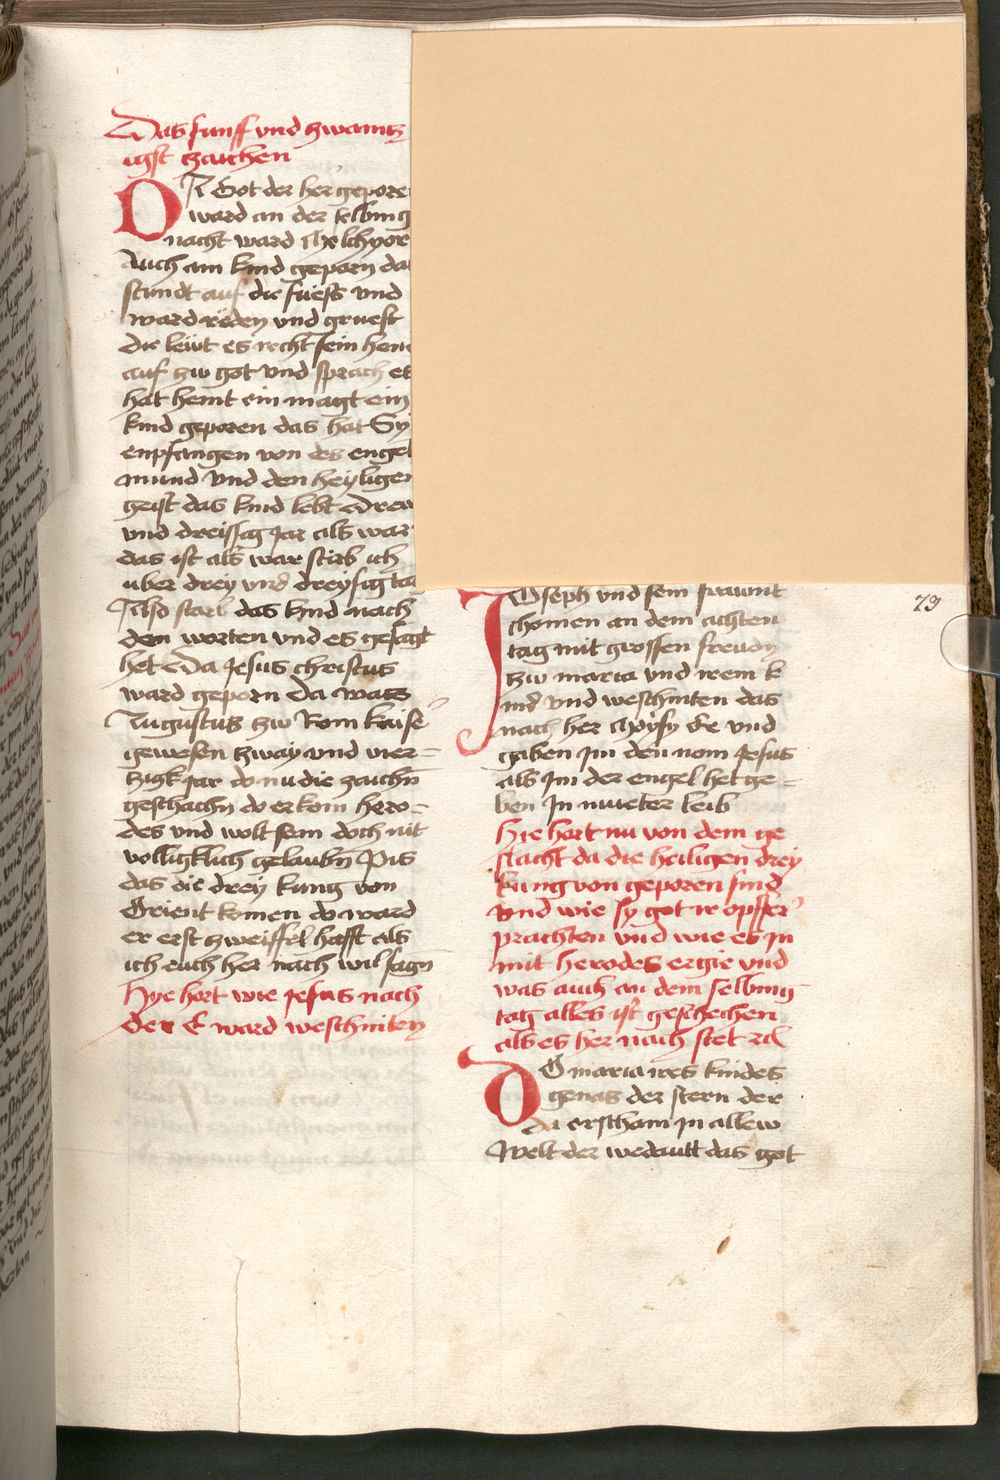 Das funff vnd zwantz
igst zaichen
DO Got der her geporen
ward an der selbing
nacht ward Melchyor
Auch ain kind geporn das
stundt auf die fuess vnd
ward reden vnd gruest
die lewt es recht sein hend
auf zw got vnd sprach es
hat heint ein magt ein
kind geporen das hat Sy
enpfangen von des engel
mund vnd den heyligen
geist das kind lebt drew
vnd dreissig Jar als war
das ist als war stirb ich
vber drey vnd dreysig tag
Also starb das kind nach
den worten vnd es gesagt
het Da Jesus christus
ward geporn Da was
Augustus zw Rom kaiser
gewesen zway vnd vier=
tzigk Jar do nu die zaichn
geschachn do erkom hero=
des vnd wolt sein doch nit
volligklich gelaubn Pis
das die drey kung von
Orient komen do ward
er erst zweiffel hafft als
ich euch her nach wil sagn
Hye hort wie Jesus nach
der E ward weschniten
JOseph vnd sein frawnt
chomen an dem achten
tag mit grossen freudn
zw maria vnd irem k
ind vnd weschniten das
nach her Moysy Ee vnd
gaben Im den nom Jesus
als Im der engel het ge=
ben In mueter leib
Hye hort nu von dem ge
slacht da die heiligen drey
kung von geporen sind
vnd wie sy got ir opffer
prachten vnd wie es In
mit herodes ergie vnd
was auch an dem selbing
tag alles ist geschechen
als es her nach stet rd
DO maria ires kindes
genas der stern der
da erscham In allew
Welt der wedautt das got
79